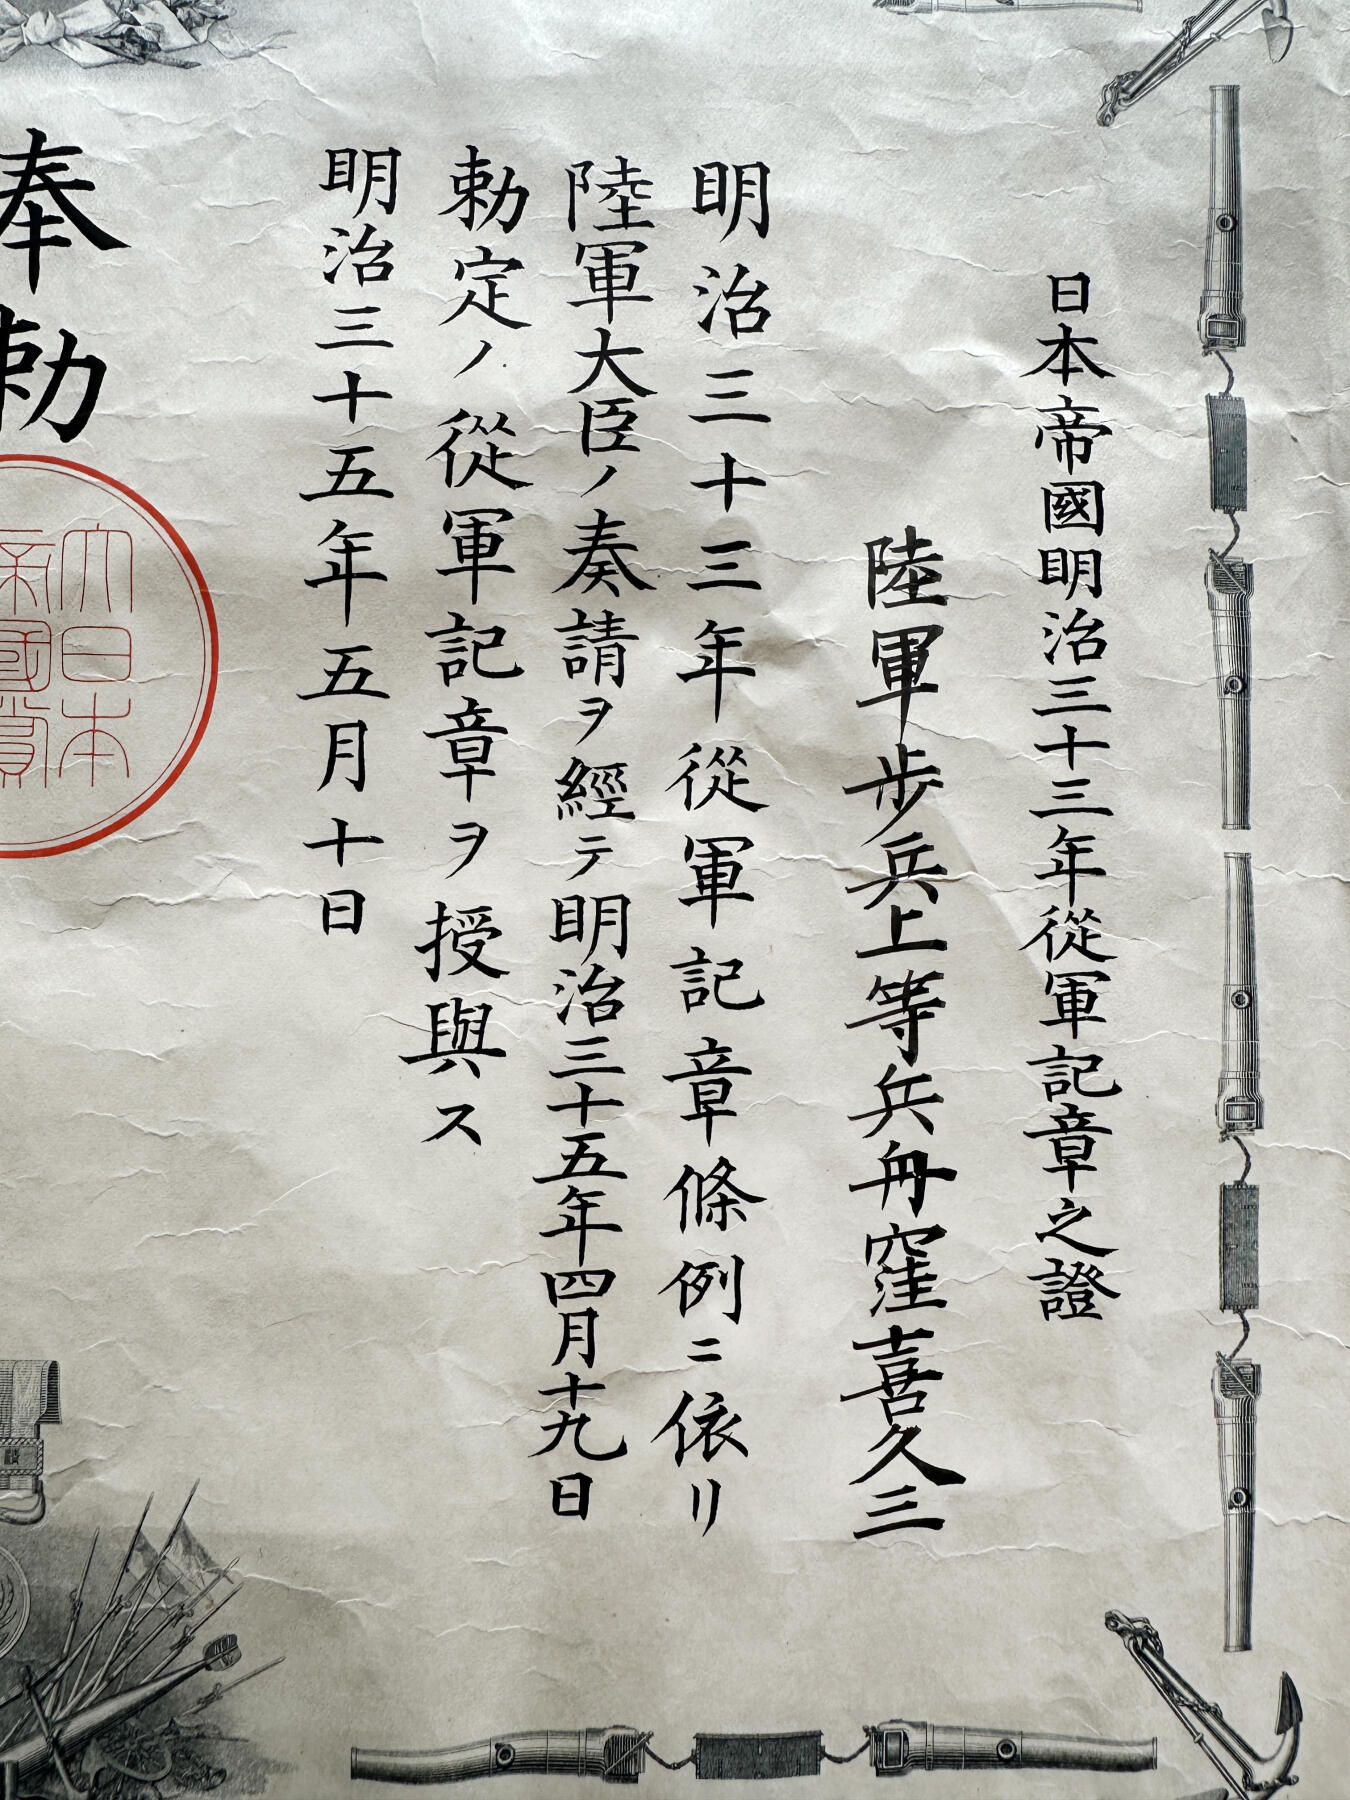 日本帝國明治三十三年從軍記章之證
陸軍歩兵上等兵舟窪喜久三
明治三十三年從軍記章條例ニ依リ
陸軍大臣ノ奏請ヲ經テ明治三十五年四月十九日
勅定ノ從軍記章ヲ授與ス
明治三十五年五月十日
奉勅
大日本
帝國賞